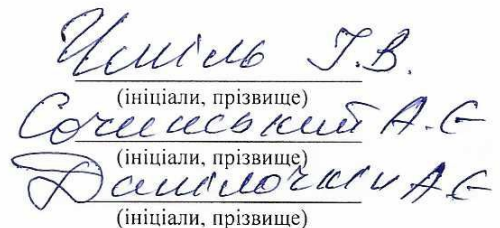 Чміль І.В.
(ініціали, прізвище)
Сочинський А.Є
(ініціали, прізвище)
Данілочкін А.Є
(ініціали, прізвище)